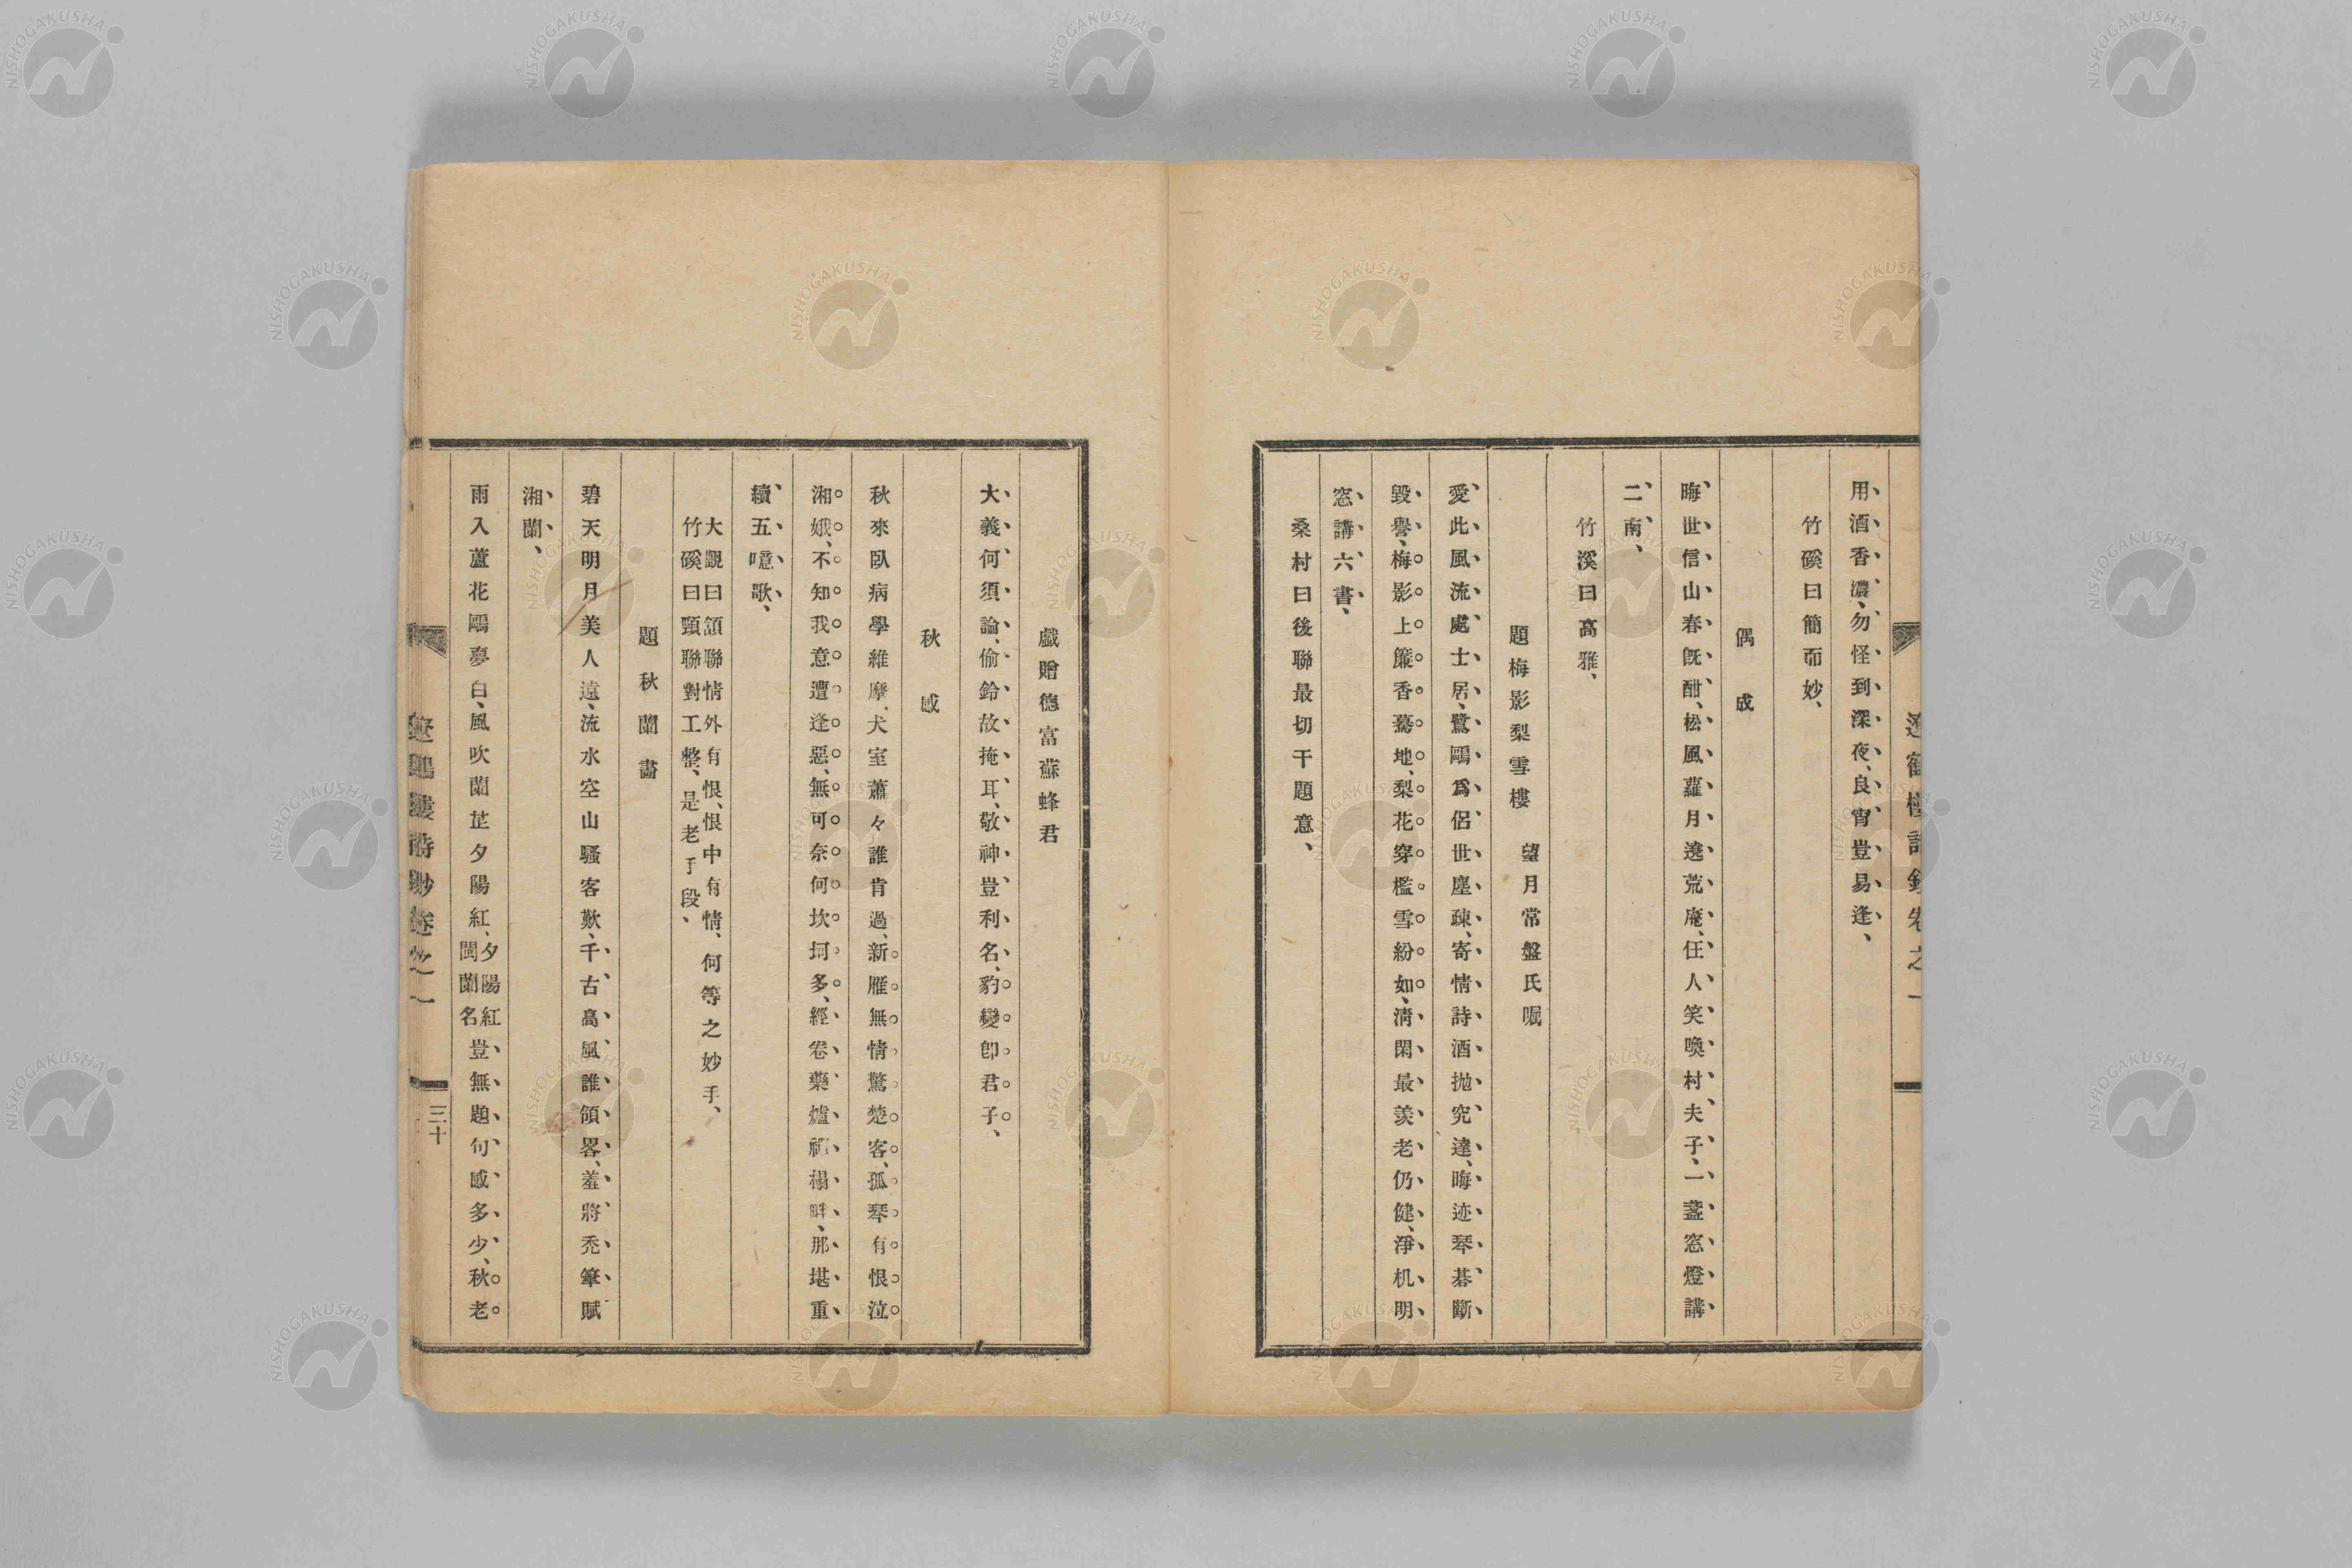 用酒香濃、勿怪到深夜、良宵豈易逢、
竹磎曰簡而妙、
偶成
晦世信山春旣酣、松風蘿月遶荒庵、任人笑喚村夫子、一盞窓燈講
二南、
竹溪曰高雅、
題梅影梨雪樓 望月常盤氏囑
愛此風流處士居、鷺鷗爲侶世塵疎、寄情詩酒抛究達、晦迹琴碁斷
毀譽、梅影上簾香驀地、梨花穿檻雪紛如、淸閑最羨老仍健、淨机明
窓講六書、
桑村曰後聯最切干題意、
戲贈德富蘇蜂君
大義何須論、偷鈴故掩耳、敬神豈利名、豹變卽君子、
秋感
秋來臥病學維摩、犬室蕭々誰肯過、新雁無情驚楚客、孤琴有恨泣
湘娥、不知我意遭逢惡、無可奈何坎坷多、經卷藥爐禪榻畔、那堪重
續五噫歌、
大觀曰頷聯情外有恨、恨中有情、何等之妙手、
竹磎曰頸聯對工整、是老手段、
題秋蘭畵
碧天明月美人遠、流水空山騷客歎、千古高風誰領畧、羞將禿筆賦
湘蘭、
雨入蘆花鷗夢白、風吹蘭芷夕陽紅、夕陽紅閩蘭名豈無題句感多少、秋老
三十
NISHOGAKUSHA